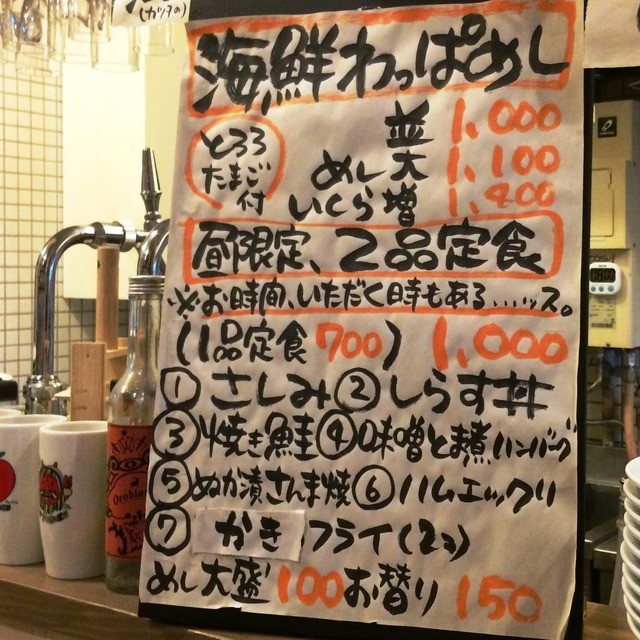 (カツ丁の)
海鮮わっぱめし
とろろ
たまご
付
並 1,000
めし大 1,100
いくら増 1,400
昼限定、2品定食
※お時間、いただく時もある、、、、ッス。
(1品定食700) 1,000
①さしみ②しらす丼
③焼き鮭④味噌とま煮ハンバーグ
⑤ぬか漬さんま焼⑥ハムエッグリ
⑦かきフライ(2コ)
めし大盛100お替り150
Orobianco